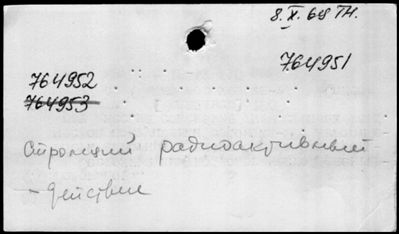 8.X.68 ТН.
764951
764952
764953
Стронций радиоактивный
- действие